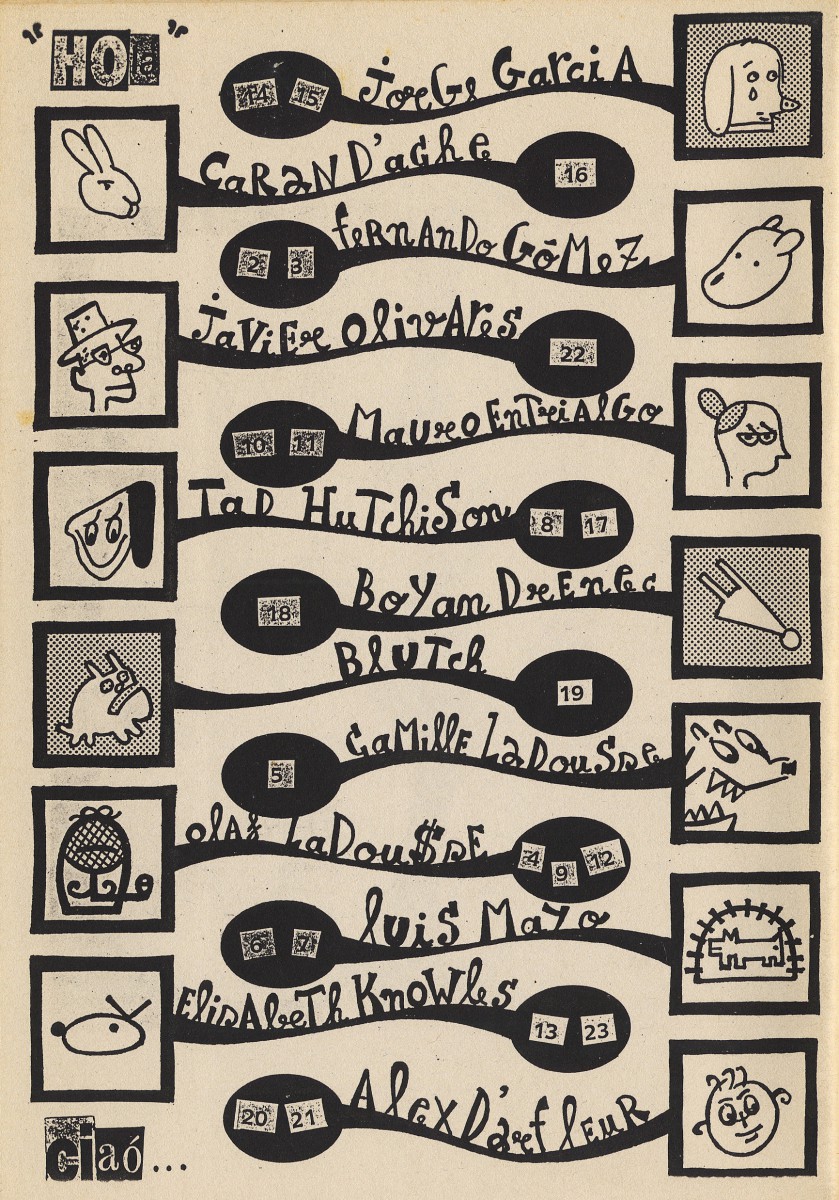 "HOla"
14 15 Jorge Garcia
Caran D'ache 16
2 3 fernando Gómez
Javier Olivares 22
10 11 Mauro Entrialgo
Tad Hutchison 8 17
18 Boyan Drenec
Blutch 19
5 Camille Ladousse
Olaf Ladou$se 4 9 12
6 7 luis Mayo
Elisabeth Knowles 13 23
20 21 Alex D'arfleur
ciaó...